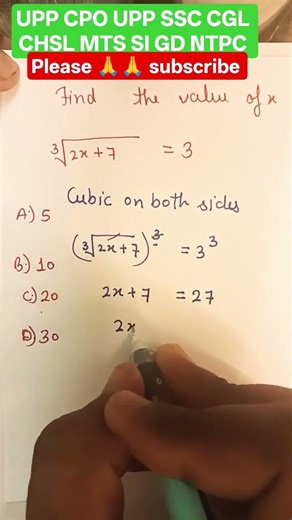 UPP CPO UPP SSC CGL
CHSL MTS SI GD NTPC
Please 🙏 🙏 subscribe
Find the value of x
∛(2x+7) = 3
Cubic on both sides
A:) 5
(∛(2x+7))³ = 3³
B:) 10
C:) 20 2x+7 = 27
D:) 30 2x